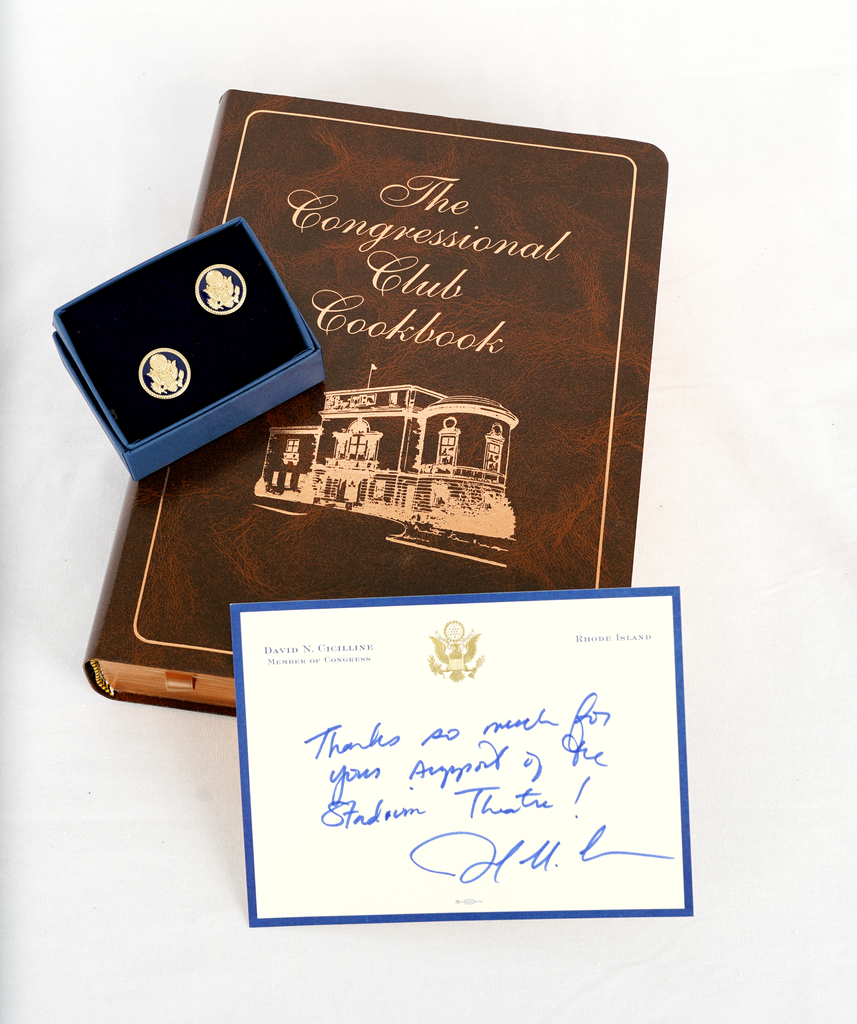 The
Congressional
Club
Cookbook
DAVID N. CICILLINE
MEMBER OF CONGRESS
RHODE ISLAND
Thanks so much for
your support of the
Stadium Theatre!